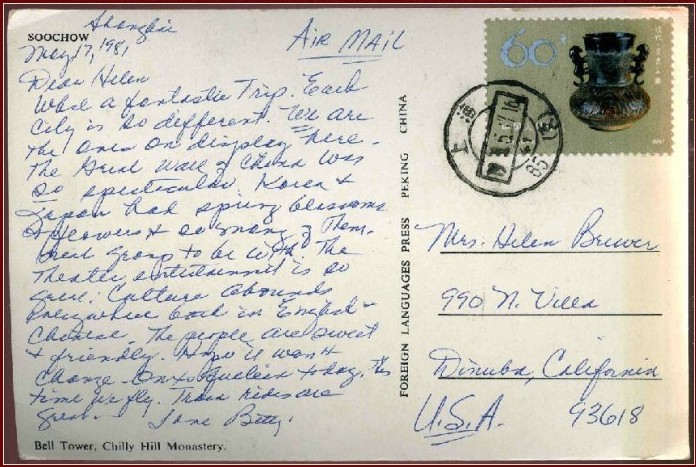 SOOCHOW
Shanghai
May 17, 1981
AIR MAIL
Dear Helen
What a fantastic Trip. Each
City is so different. We are
the ones on display here.
The Great Wall of China was
so spectacular. Korea &
Japan had spring blossoms
& flowers & so many of them.
Great group to be with. The
Theater entertainment is so
great. Culture abounds
everywhere both in English &
Chinese. The people are sweet
& friendly. Hope it won't
change. On to today. This
time we fly. Train rides are
great. Love Betty.
Bell Tower, Chilly Hill Monastery.
FOREIGN LANGUAGES PRESS PEKING CHINA
60
Mrs. Helen Brewer
990 N. Villa
Dinuba, California
U.S.A. 93618